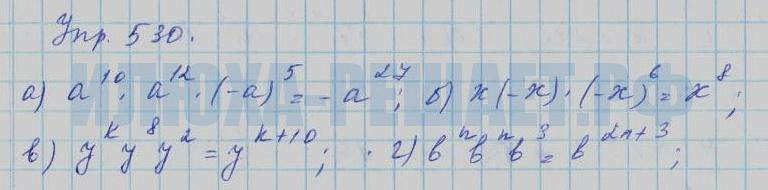 Упр. 530.
а) a¹⁰ · a¹² · (-a)⁵ = -a²⁷; б) x(-x) · (-x)⁶ = x⁸;
в) yᵏ y⁸ y² = yᵏ⁺¹⁰; г) bⁿ bⁿ b³ = b²ⁿ⁺³;
ИЛЮХА-РЕШАЕТ.РФ